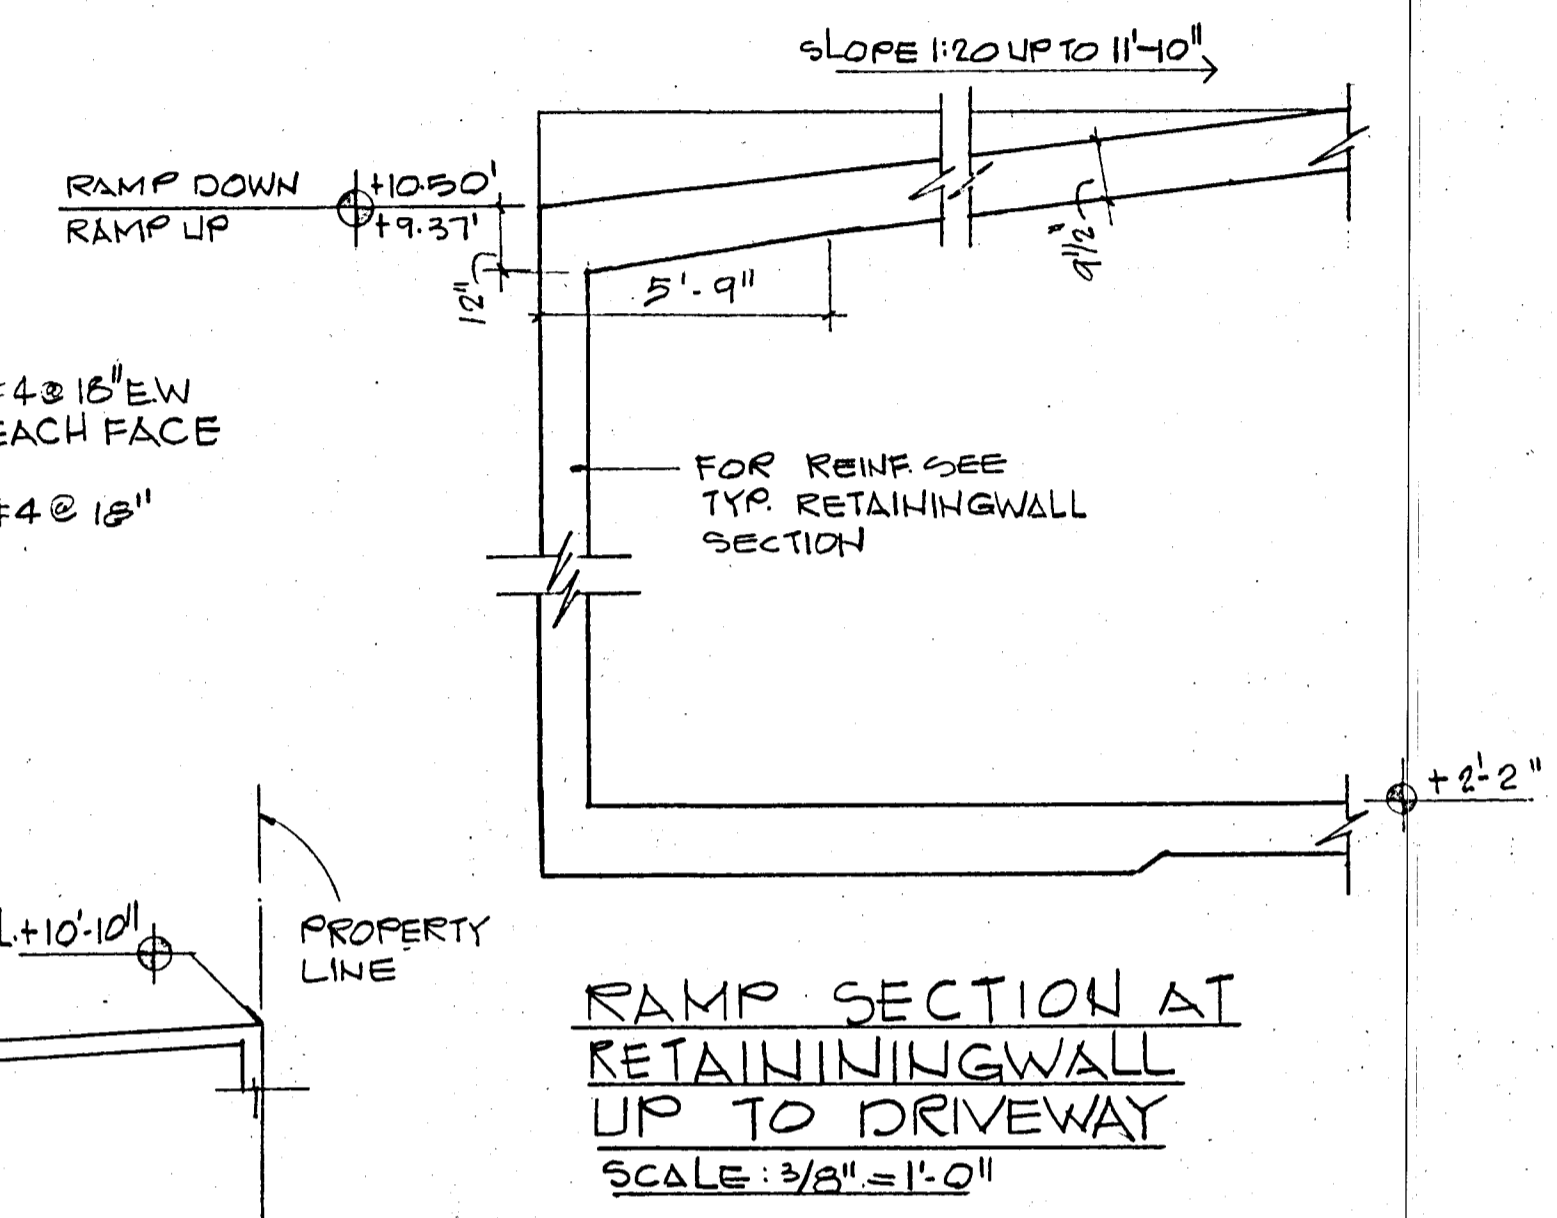 SLOPE 1:20 UP TO 11'-10"
RAMP DOWN
+10.50'
RAMP UP
+9.37'
12"
5'-9"
9 1/2"
#4@18"E.W
EACH FACE
#4@18"
FOR REINF. SEE
TYP. RETAININGWALL
SECTION
+2'-2"
L.+10'-10"
PROPERTY
LINE
RAMP SECTION AT
RETAINININGWALL
UP TO DRIVEWAY
SCALE: 3/8" = 1'-0"